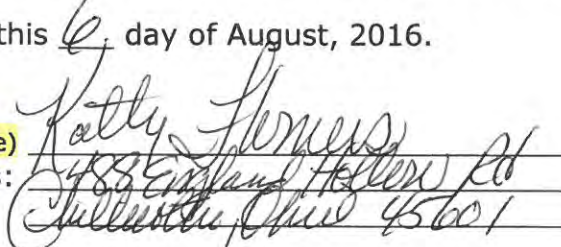 this 6 day of August, 2016.
e) Kathy
: 488 England Hollow Rd
Chillicothe, Ohio 45601